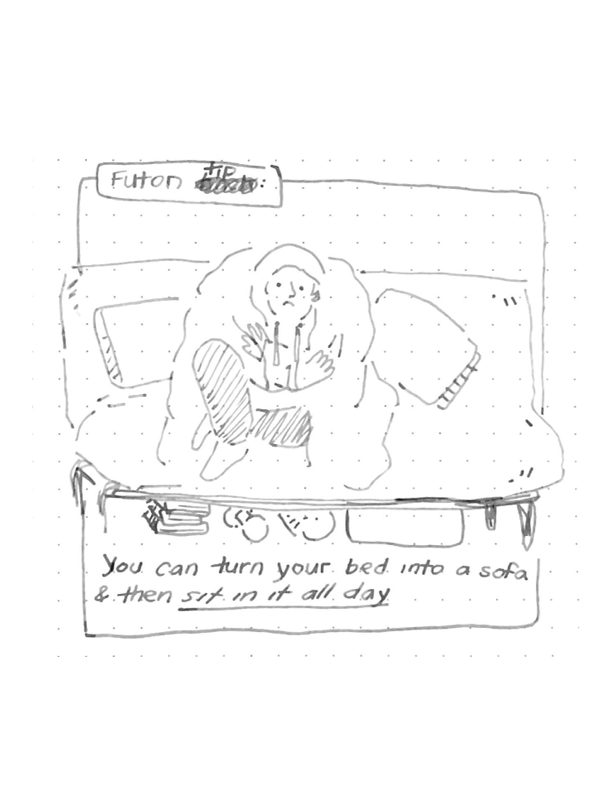 Futon tip:
You can turn your bed into a sofa
& then sit in it all day